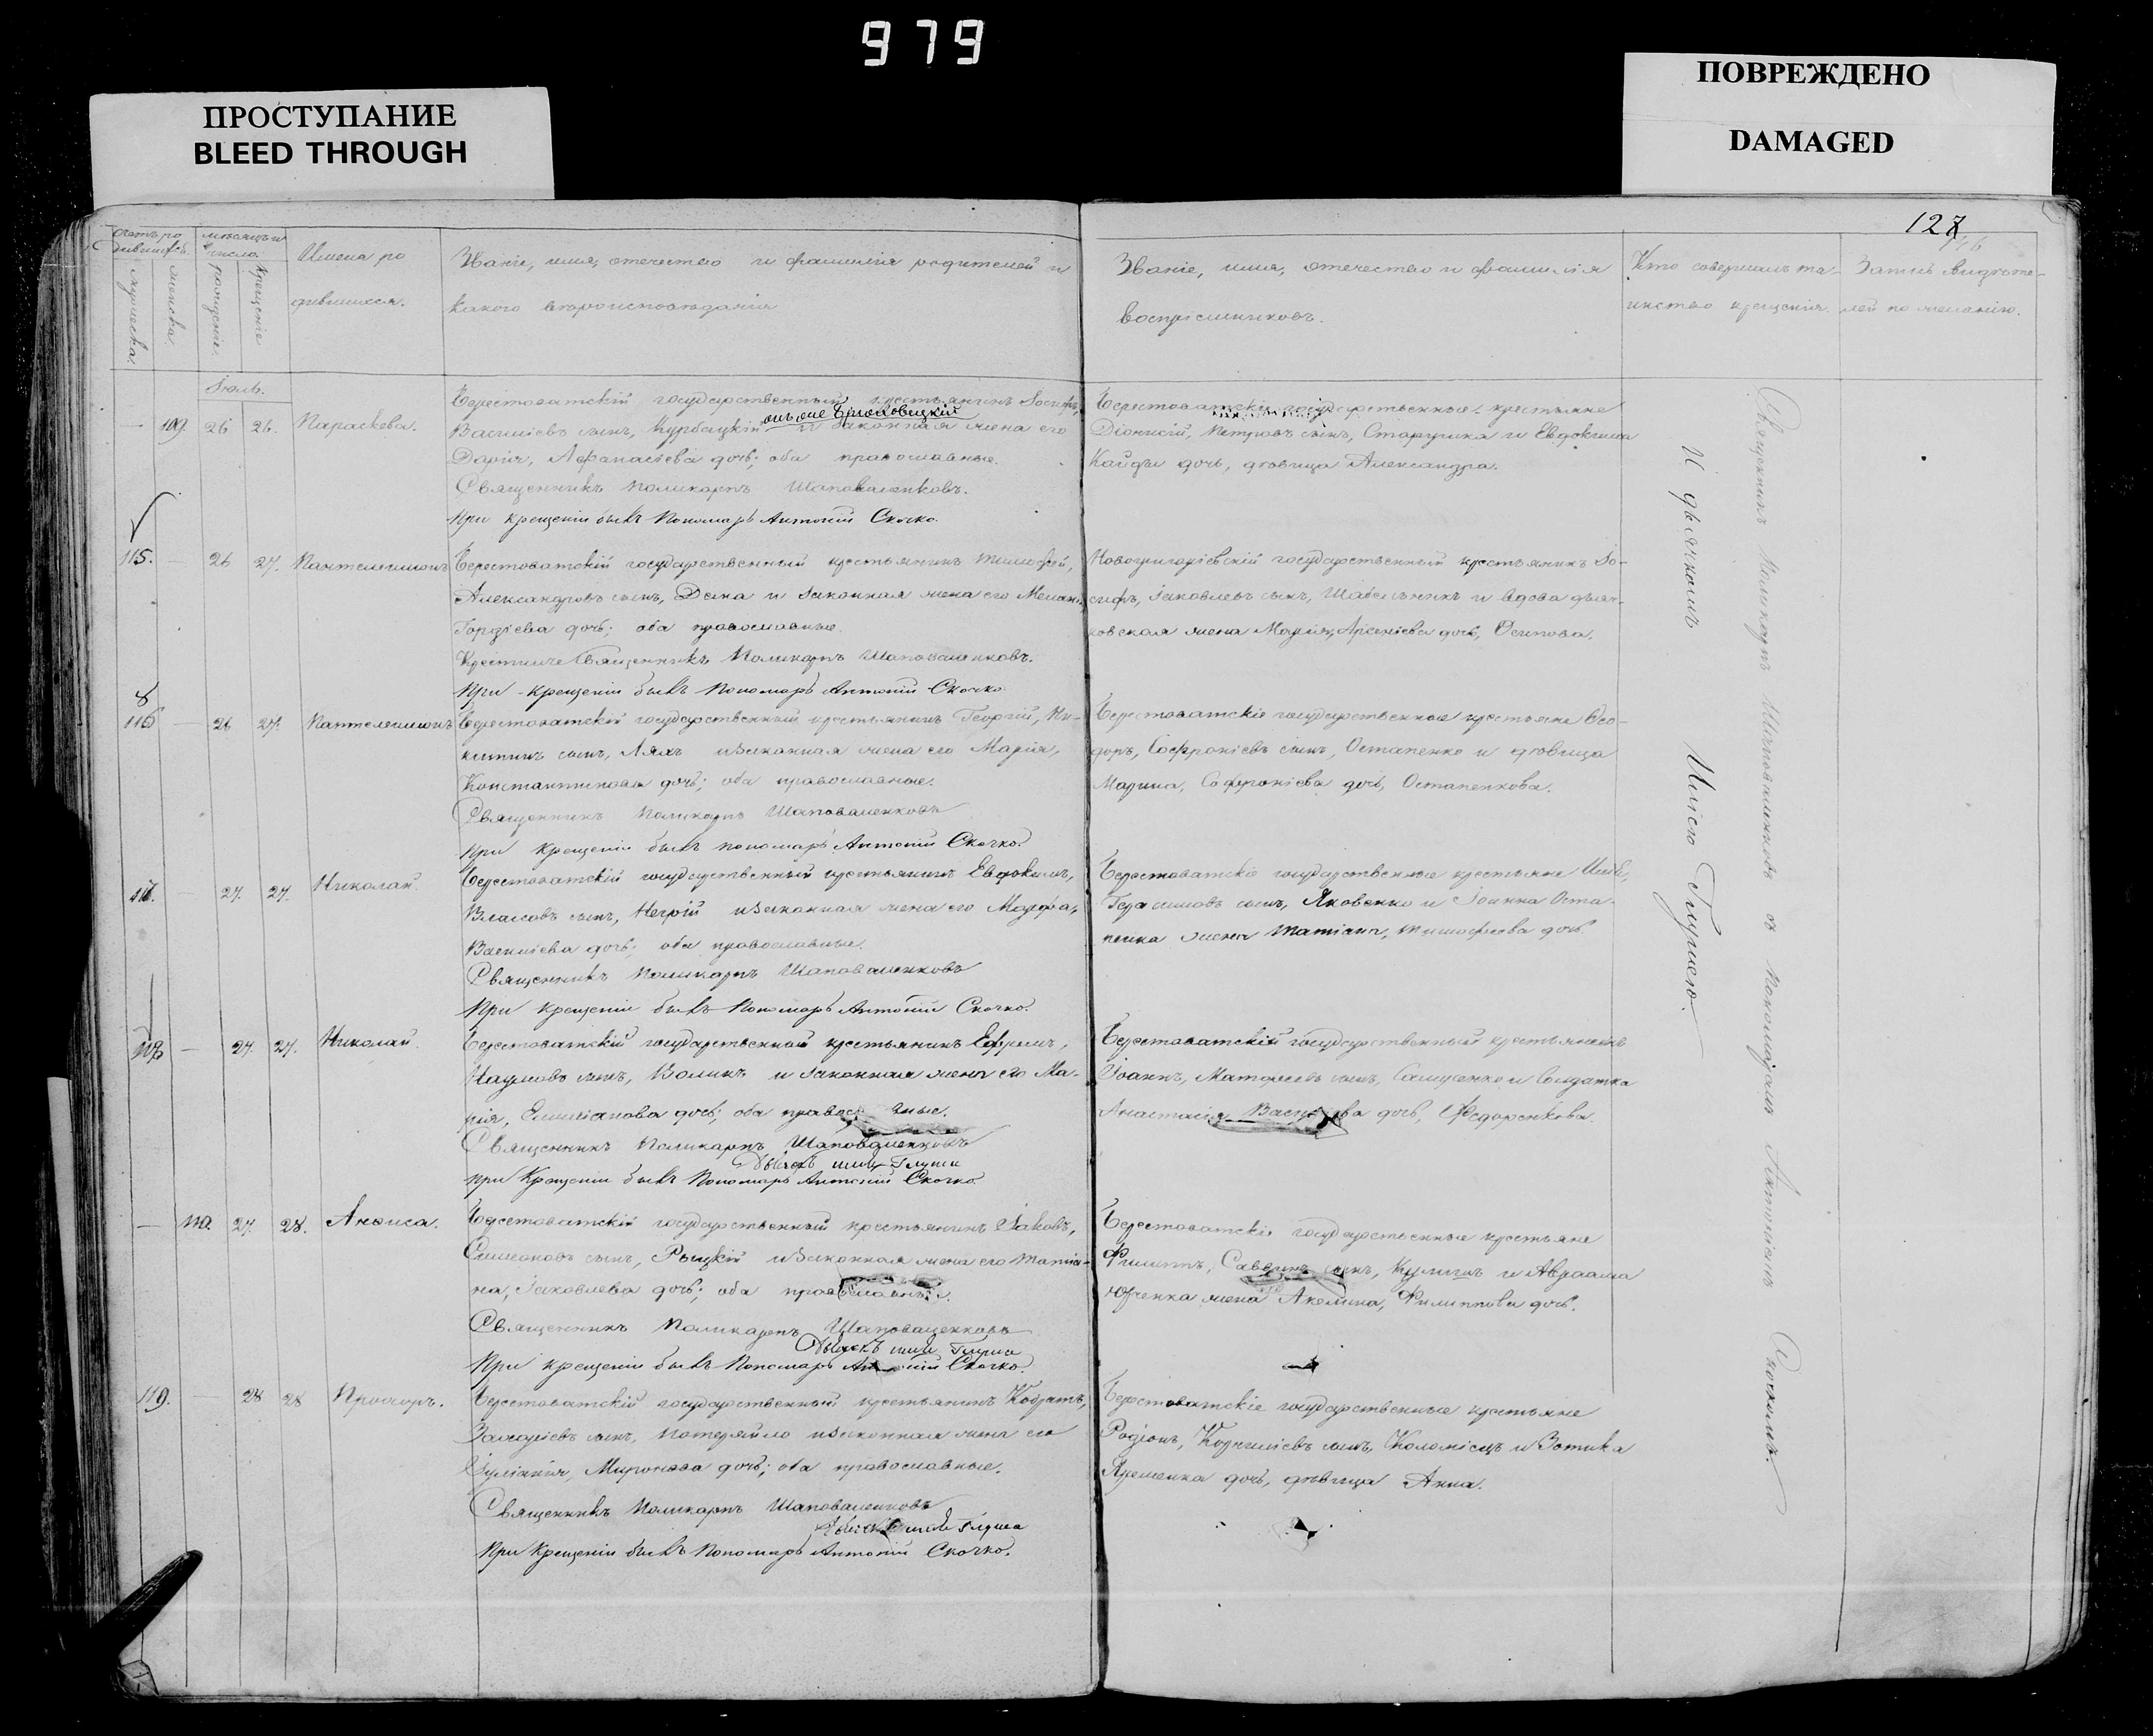 979
ПРОСТУПАНИЕ
BLEED THROUGH
ПОВРЕЖДЕНО
DAMAGED
127
Счетъ ро
дившихся.
мужеска.
женска.
мѣсяцъ и
число
рожденіе.
крещеніе
Имена ро
дившихся.
Званіе, имя, отечество и фамилія родителей и
какого вѣроисповѣданія
Званіе, имя, отечество и фамилія
воспріемниковъ.
Кто совершалъ та-
инство крещенія.
лей по желанію.
Іюль.
109. 26 26. Параскева.
Берестоватскій государственный крестьянинъ Іосифъ,
Василіевъ сынъ, Курбацкій и законная жена его
Дарія, Афанасіева дочь; оба православные.
Священникъ Поликарпъ Шаповаленковъ.
При крещеніи былъ Пономарь Антоній Скочко.
Берестоватскіе государственные крестьяне
Діонисій, Петровъ сынъ, Старушка и Евдокима
Кайды дочь, дѣвица Александра.
115. — 26 27. Пантелеимонъ
Берестоватскій государственный крестьянинъ Тимофей,
Александровъ сынъ, Дека и законная жена его Мелан.
Гордіева дочь; оба православные.
Священникъ Поликарпъ Шаповаленковъ.
При крещеніи былъ Пономарь Антоній Скочко.
Новогригоріевскій государственный крестьянинъ Іо-
сифъ, Іаковлевъ сынъ, и вдова дьяч-
ковская жена Марія, Арсеніева дочь, Осипова.
116 — 26 27. Пантелеимонъ
Берестоватскій государственный крестьянинъ Георгій, Ни-
китинъ сынъ, Ляхъ и законная жена его Марія,
Константинова дочь; оба православные.
Священникъ Поликарпъ Шаповаленковъ
При крещеніи былъ пономарь Антоній Скочко.
Берестоватскіе государственные крестьяне Ѳео-
доръ, Софроніевъ сынъ, Остапенко и дѣвица
Марина, Софроніева дочь, Остапенкова.
117. — 27. 27. Николай.
Берестоватскій государственный крестьянинъ Евдокимъ,
Власовъ сынъ, Негрій и законная жена его Марфа,
Василіева дочь; оба православные.
Священникъ Поликарпъ Шаповаленковъ
При крещеніи былъ Пономарь Антоній Скочко.
Берестоватскіе государственные крестьяне
Герасимовъ сынъ, Яковенко и Іоанна Оста-
пенка жена Татіана, Тимофеева дочь.
118 — 27. 27. Николай.
Берестоватскій государственный крестьянинъ Ефремъ,
Наумовъ сынъ, Воликъ и законная жена его Ма-
рія, Емиліанова дочь; оба правос ные.
Священникъ Поликарпъ Шаповаленковъ
Дьячекъ Илія Глуша
При Крещеніи былъ Пономарь Антоній Скочко
Берестоватскій государственный крестьянинъ
Іоаннъ, Матфеевъ сынъ, Самусенко и Солдатка
Анастасія Васи ва дочь, Федоренкова.
— 110. 27. 28. Анѳиса.
Берестоватскій государственный крестьянинъ Іаковъ,
Симеоновъ сынъ, Рыцкій и законная жена его Татіа-
на, Іаковлева дочь; оба православные.
Священникъ Поликарпъ Шаповаленковъ
Дьячекъ Илія Глуша
При крещеніи былъ Пономарь Антоній Скочко.
Берестоватскіе государственные крестьяне
Филиппъ, Саввинъ сынъ, Кулишъ и Авраама
Юрченка жена Акелина, Филиппова дочь.
119. — 28 28 Прохоръ.
Берестоватскій государственный крестьянинъ Кодратъ,
Захаріевъ сынъ, Потеряйло и законная жена его
Іуліанія, Миронова дочь; оба православные.
Священникъ Поликарпъ Шаповаленковъ
Илія Глуша
При Крещеніи былъ Пономарь Антоній Скочко.
Берестоватскіе государственные крестьяне
Родіонъ, Корниліевъ сынъ, Коломіецъ и Зотика
Яременка дочь, дѣвица Анна.
И дьячкомъ Иліею Глушею.
Священникъ Поликарпъ Шаповаленковъ съ Пономаремъ Антоніемъ Скочкомъ.